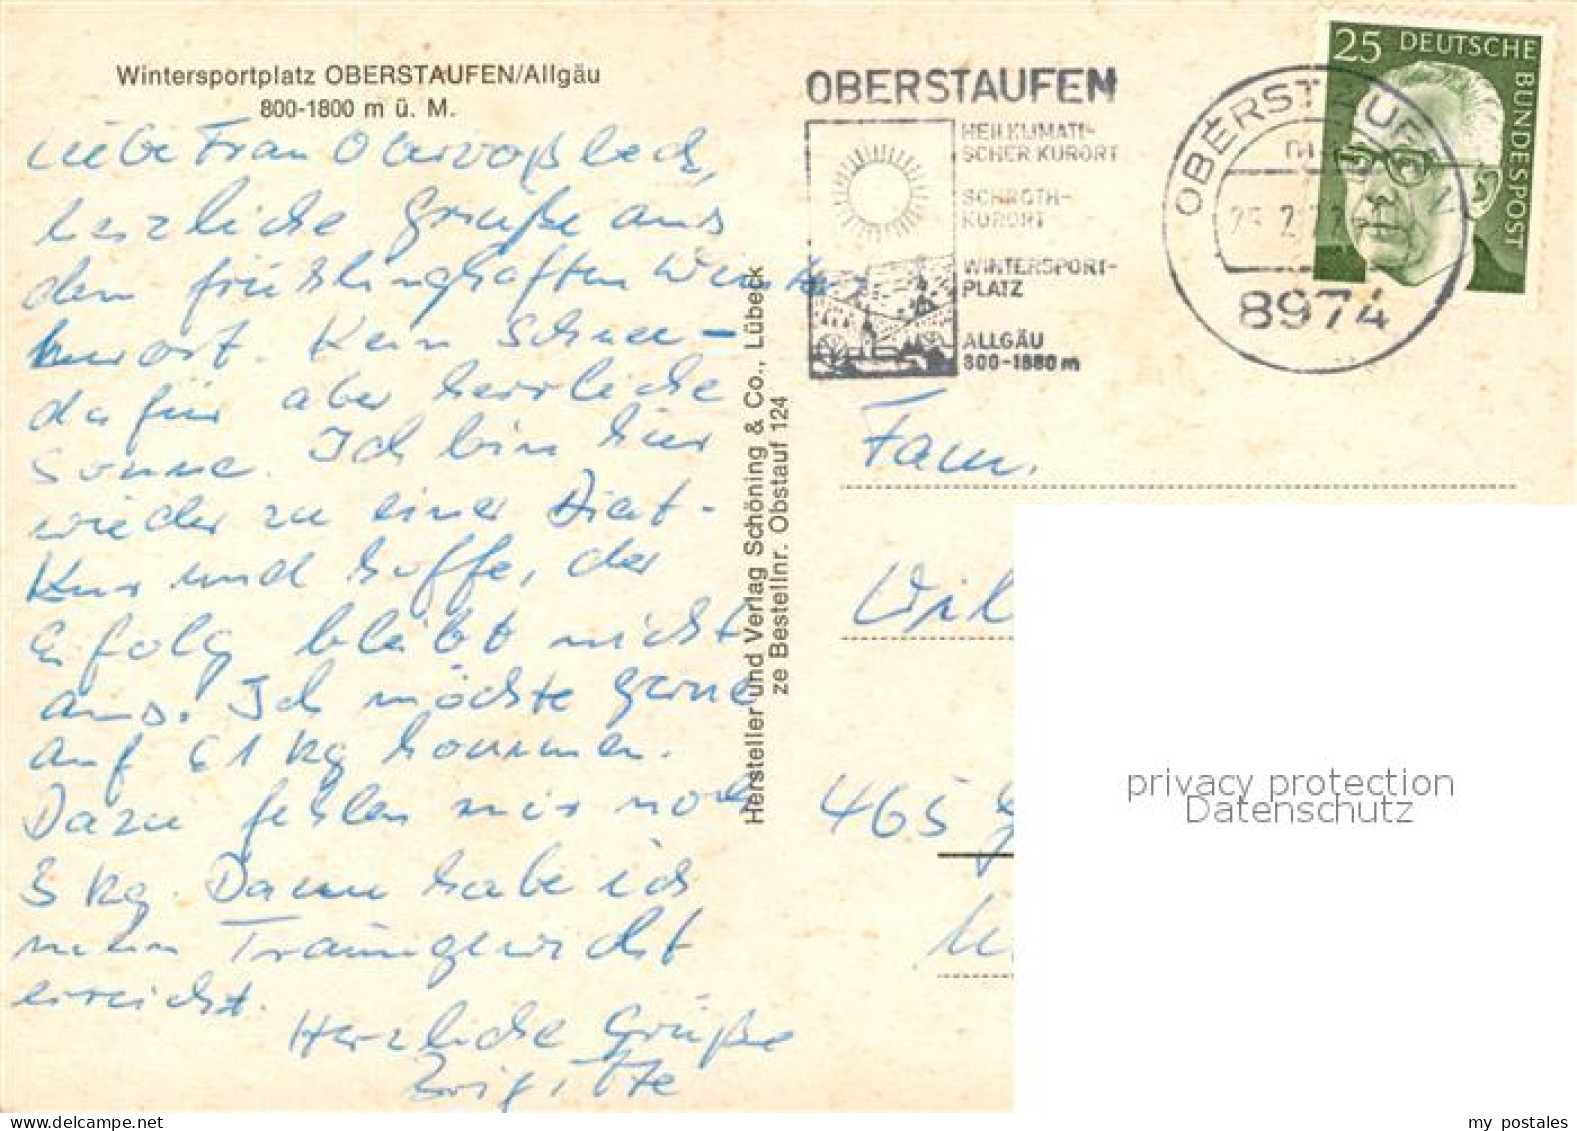 Wintersportplatz OBERSTAUFEN/Allgäu
800-1800 m ü. M.
Liebe Frau
herzliche Grüße aus
dem frühlinghaften Winter
kurort. Kein Schnee -
dafür aber herrliche
Sonne. Ich bin hier
wieder zu einer Diät-
Kur und hoffe, der
Erfolg bleibt nicht
aus. Ich möchte gerne
auf 61 kg kommen.
Dazu fehlen mir noch
3 kg. Dann habe ich
mein Traumgewicht
erreicht.
Herzliche Grüße
Brigitte
Hersteller und Verlag Schöning & Co., Lübeck
ze Bestellnr. Obstauf 124
OBERSTAUFEN
HEILKLIMATI-
SCHER KURORT
SCHROTH-
KURORT
WINTERSPORT-
PLATZ
ALLGÄU
800-1880 m
OBERSTAUFEN
8974
25 DEUTSCHE
BUNDESPOST
Fam.
465
privacy protection
Datenschutz
my postales